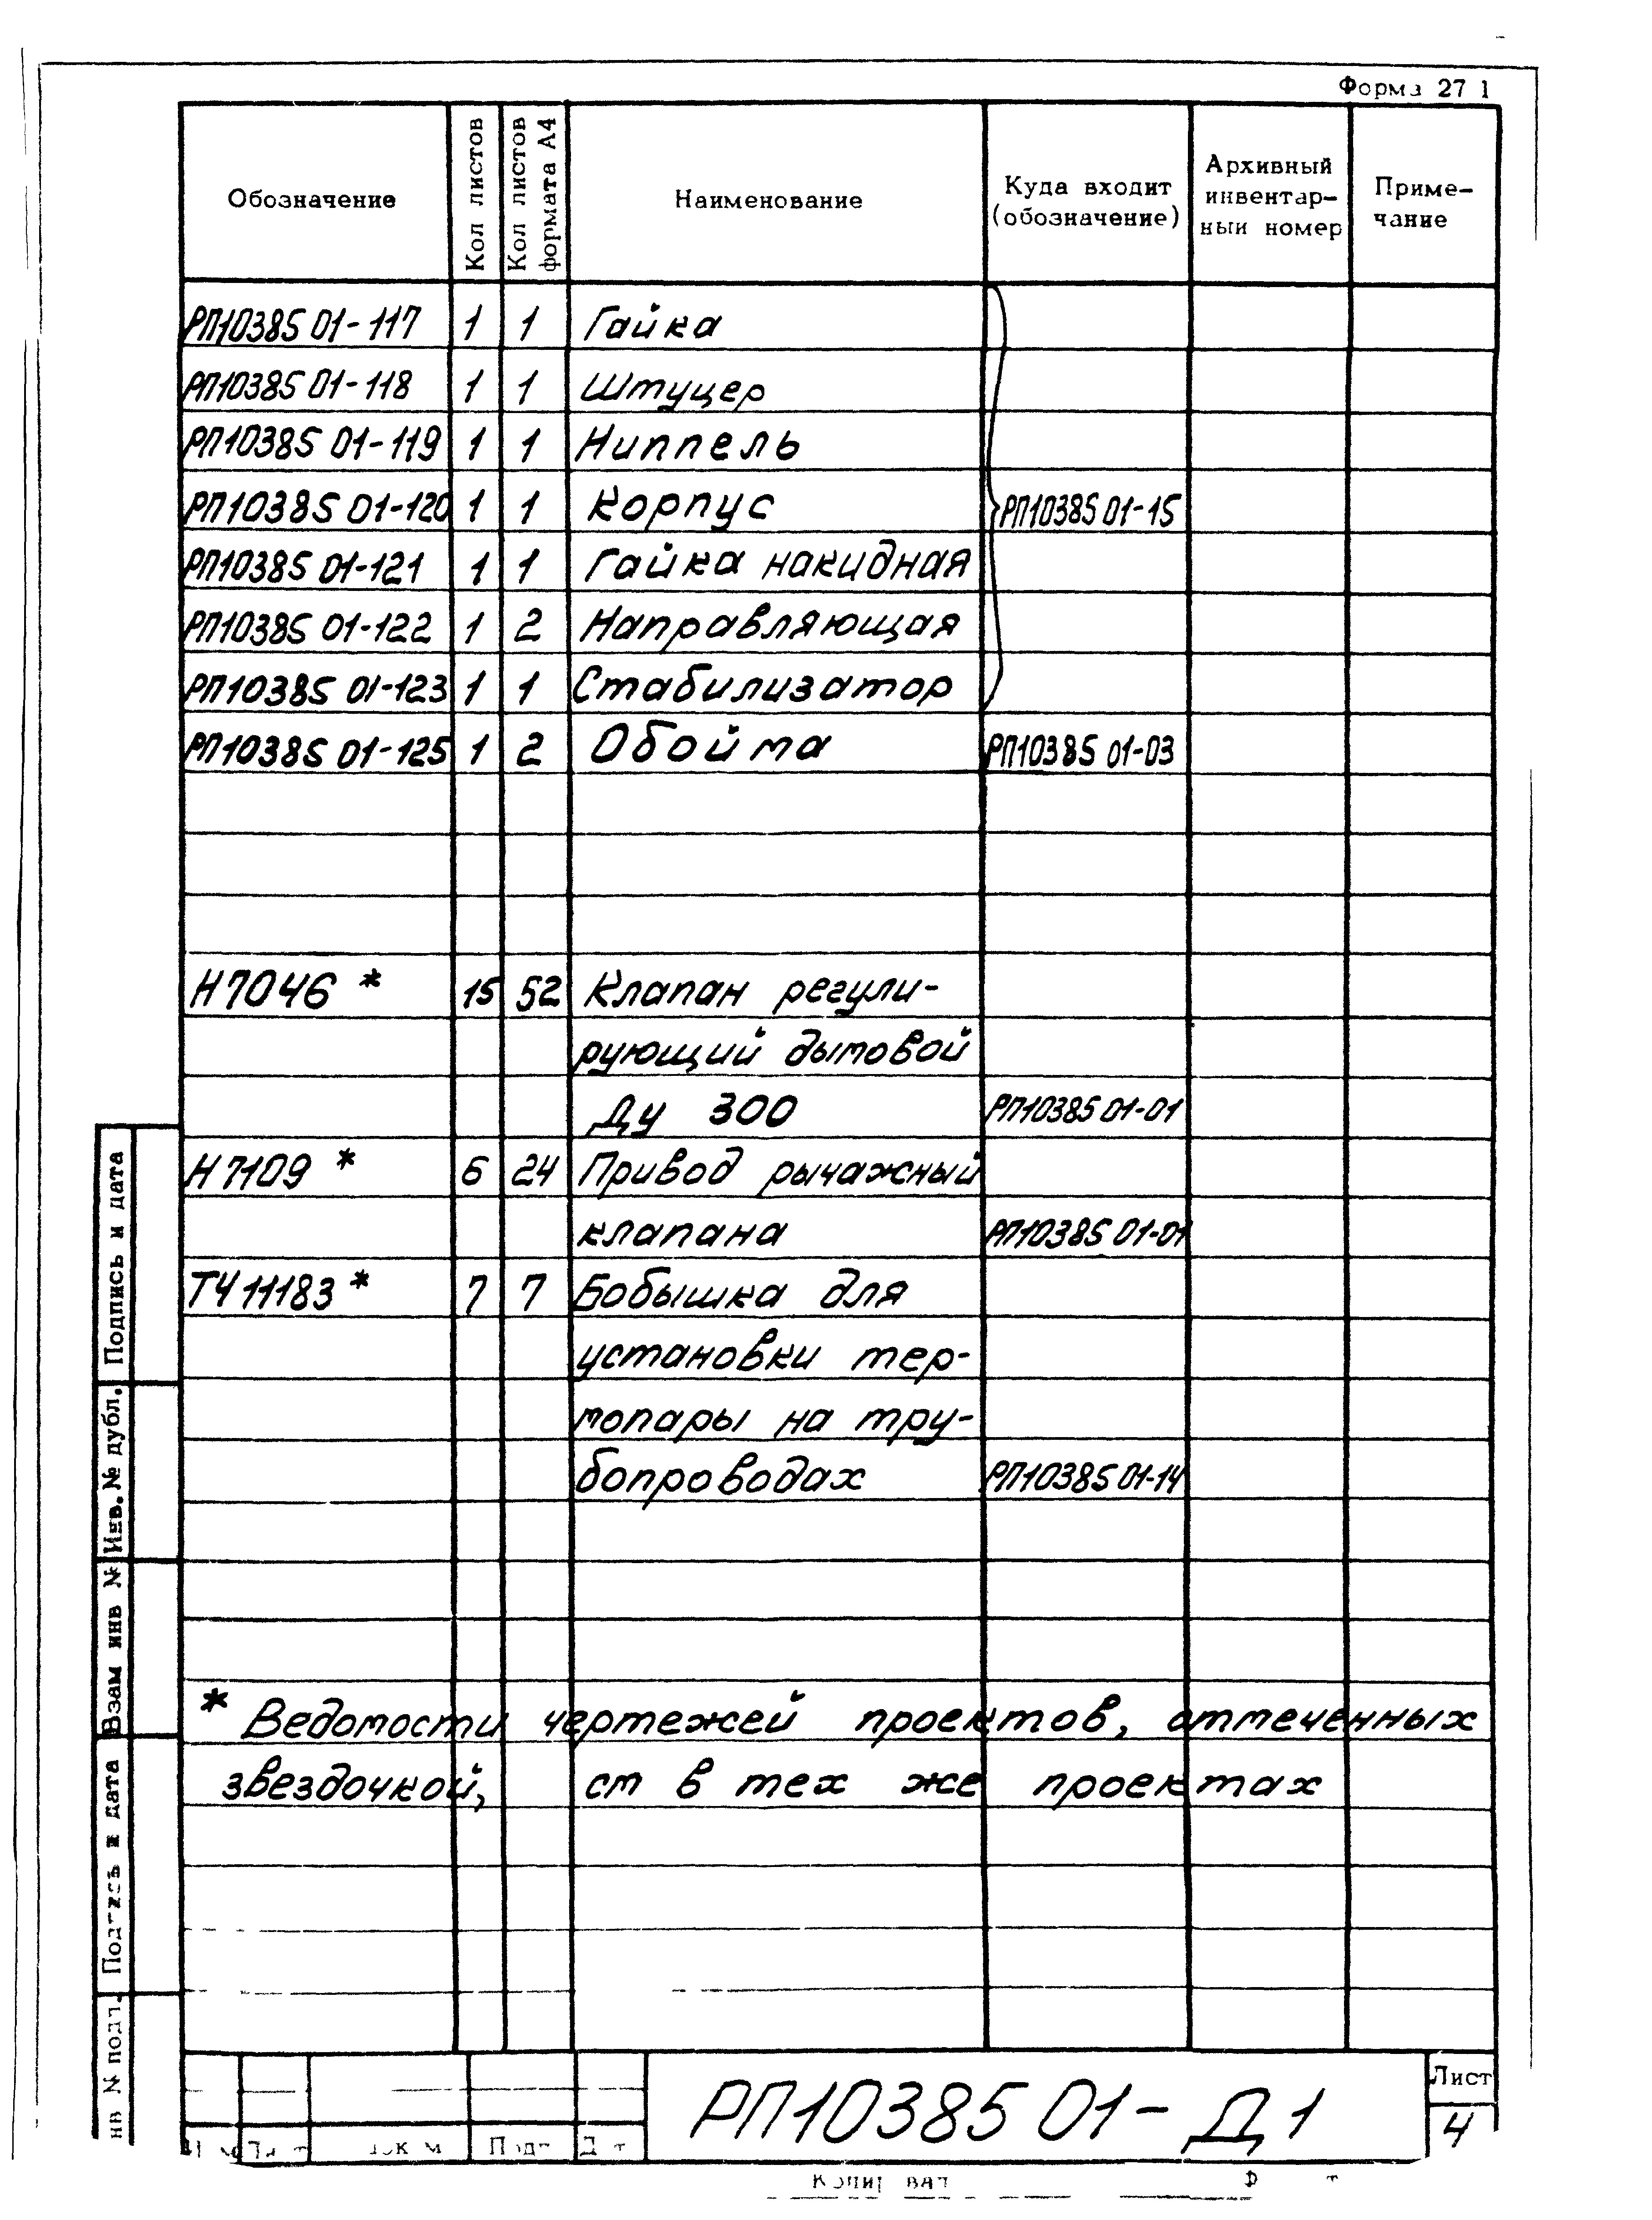 Форма 27 1
Обозначение
Кол листов
Кол листов формата А4
Наименование
Куда входит (обозначение)
Архивный инвентар-ный номер
Приме-чание
РП10385 01-117 1 1 Гайка
РП10385 01-118 1 1 Штуцер
РП10385 01-119 1 1 Ниппель
РП10385 01-120 1 1 Корпус РП10385 01-15
РП10385 01-121 1 1 Гайка накидная
РП10385 01-122 1 2 Направляющая
РП10385 01-123 1 1 Стабилизатор
РП10385 01-125 1 2 Обойма РП10385 01-03
Н7046 * 15 52 Клапан регули-
рующий дымовой
Ду 300 РП10385 01-01
Н7109 * 6 24 Привод рычажный
клапана РП10385 01-01
ТЧ11183 * 7 7 Бобышка для
установки тер-
мопары на тру-
бопроводах РП10385 01-14
* Ведомости чертежей проектов, отмеченных
звездочкой, см в тех же проектах
Подпись и дата
Инв. № дубл.
Взам инв №
Подпись и дата
нв № подл.
РП10385 01-Д1
Лист
4